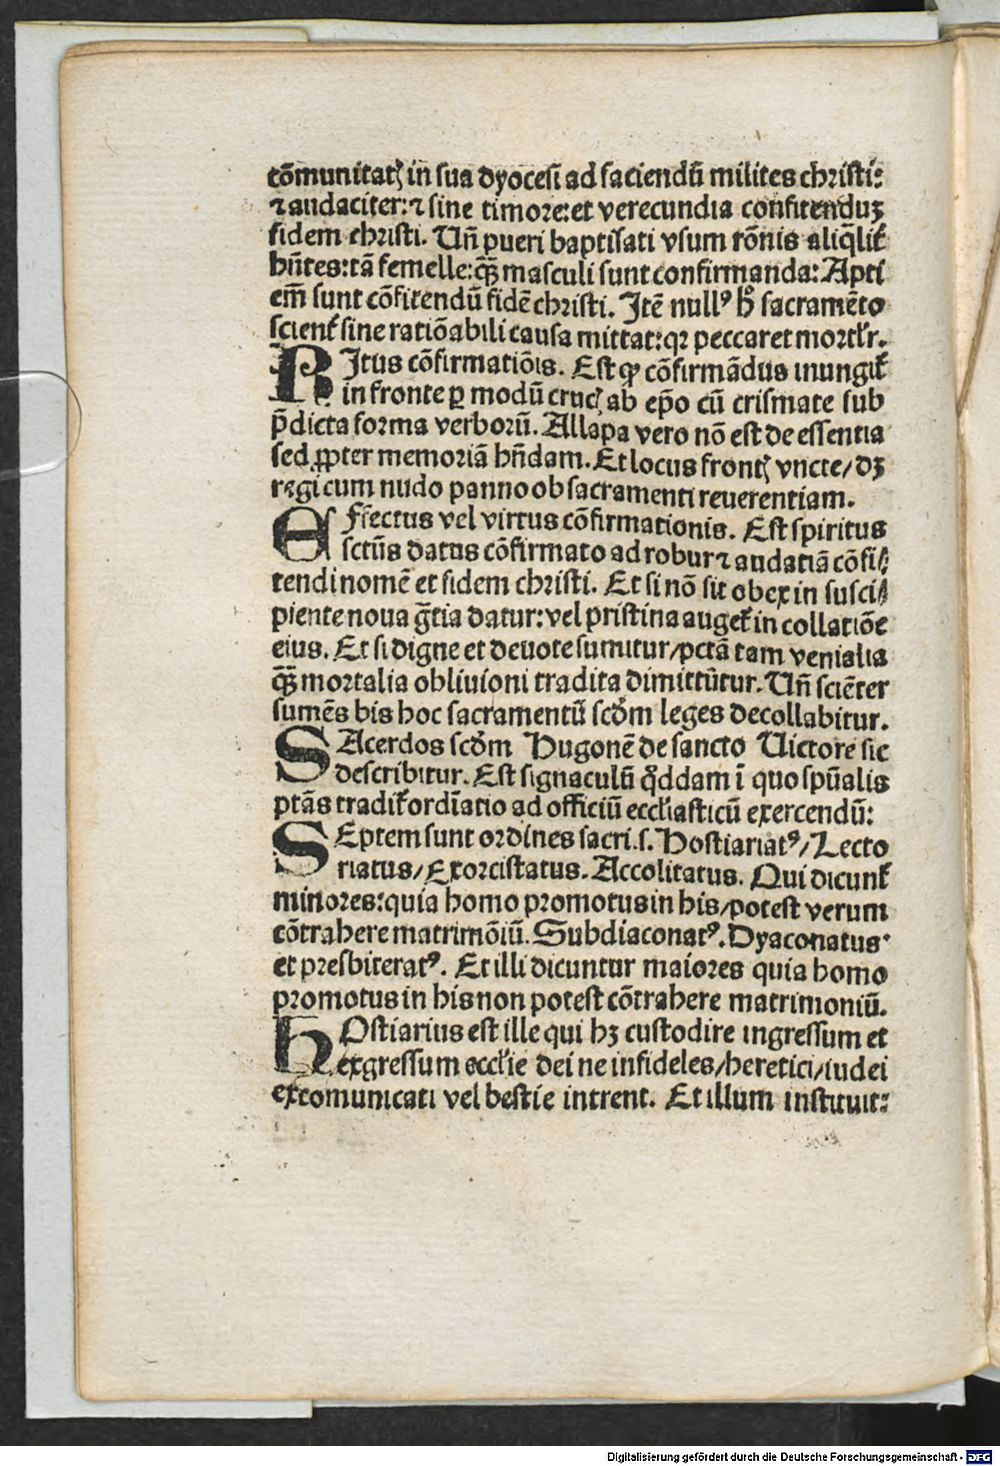 cōmunitatꝭ in sua dyocesi ad faciendū milites christi:
⁊ audaciter: ⁊ sine timore: et verecundia confitenduꝫ
fidem christi. Uñ pueri baptisati vsum rōnis aliq̄lit᷑
hn̄tes: tā femelle: qȝ̄ masculi sunt confirmanda: Apti
em̄ sunt cōfitendū fidē christi. Itē nullꝰ hͦ sacramēto
scient᷑ sine ratiōabili causa mittat: qꝛ peccaret mortl'r.
RItus cōfirmatiōis. Est ꝙ cōfirmādus inungit᷑
in fronte ꝑ modū crucꝭ ab ep̄o cū crismate sub
p̄dicta forma verborū. Allapa vero nō est de essentia
sed ꝓpter memoriā hn̄dam. Et locus frontꝭ vncte/ dꝫ
regi cum nudo panno ob sacramenti reuerentiam.
EFfectus vel virtus cōfirmationis. Est spiritus
sctūs datus cōfirmato ad robur ⁊ audatiā cōfi⸗
tendi nomē et fidem christi. Et si nō sit obex in susci⸗
piente noua gr̄tia datur: vel pristina auget᷑ in collatiōe
eius. Et si digne et deuote sumitur/ pctā tam venialia
qȝ̄ mortalia obliuioni tradita dimittūtur. Uñ sciēter
sumēs bis hoc sacramentū scd̄m leges decollabitur.
SAcerdos scd̄m Hugonē de sancto Uictore sic
describitur. Est signaculū qͦddam ī quo spūalis
ptās tradit᷑ ordīatio ad officiū eccl'iasticū exercendū:
SEptem sunt ordines sacri .s. Hostiariatꝰ/ Lecto
riatus/ Exorcistatus. Accolitatus. Qui dicunt᷑
minores: quia homo promotus in his/ potest verum
cōtrahere matrimōiū. Subdiaconatꝰ. Dyaconatus.
et presbiteratꝰ. Et illi dicuntur maiores quia homo
promotus in his non potest cōtrahere matrimoniū.
HOstiarius est ille qui hꝫ custodire ingressum et
exgressum eccl'ie dei ne infideles/ heretici/ iudei
excomunicati vel bestie intrent. Et illum instituit:
Digitalisierung gefördert durch die Deutsche Forschungsgemeinschaft - DFG